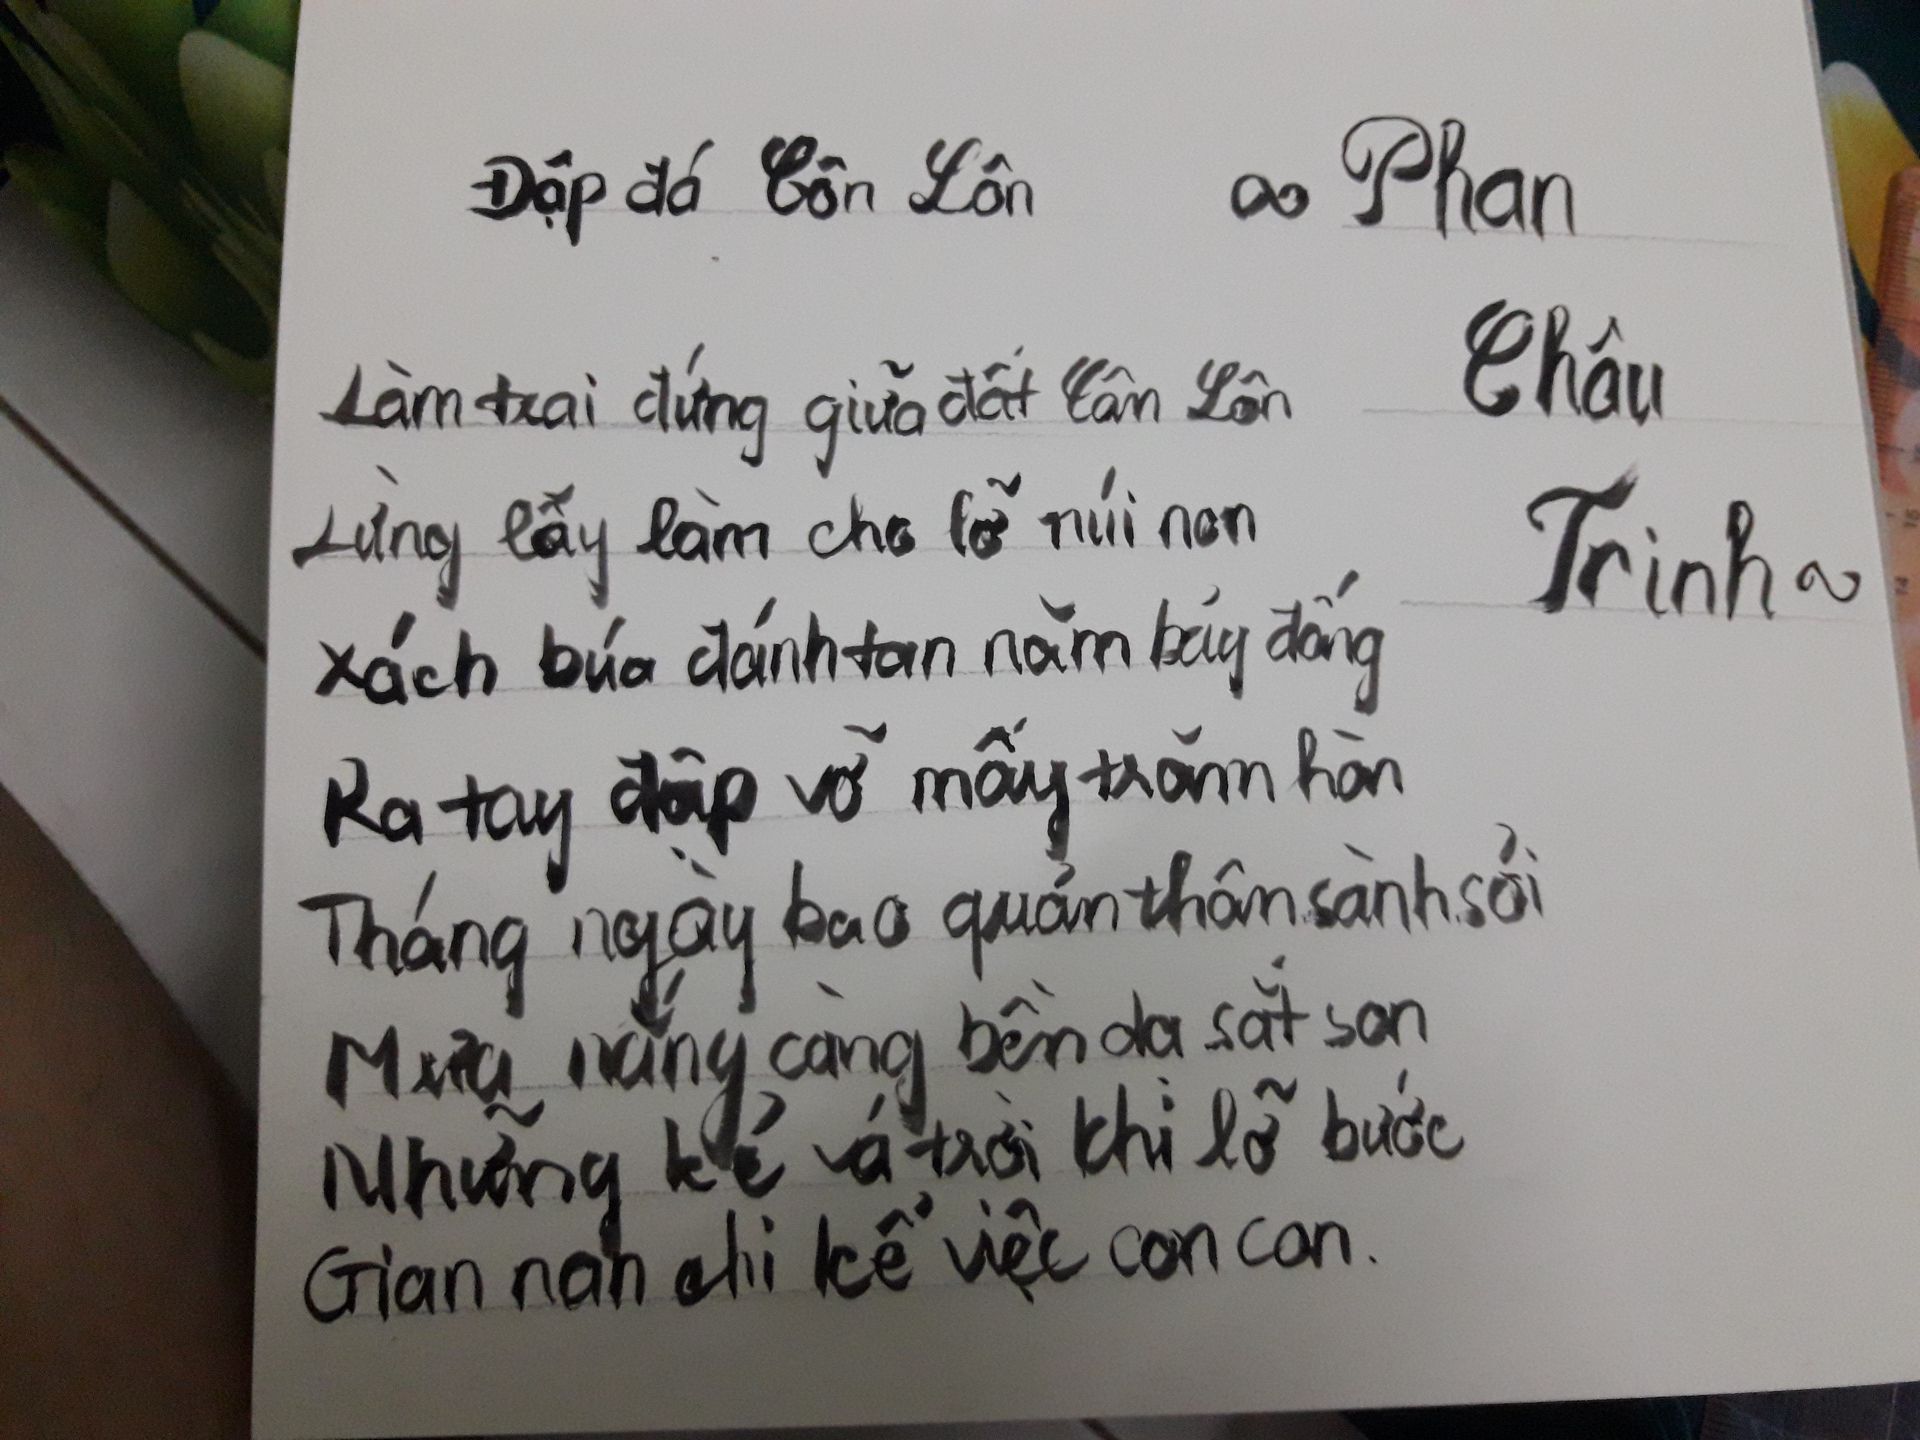 Đập đá Côn Lôn ~ Phan
Châu
Trinh ~
Làm trai đứng giữa đất Côn Lôn
Lừng lẫy làm cho lở núi non
Xách búa đánh tan năm bảy đống
Ra tay đập vỡ mấy trăm hòn
Tháng ngày bao quản thân sành sỏi
Mưa nắng càng bền dạ sắt son
Những kẻ vá trời khi lỡ bước
Gian nan chi kể việc con con.